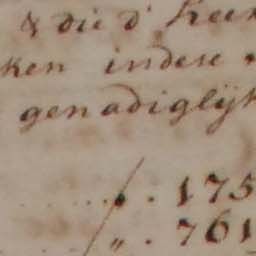 & die d' Kee
ken indese
genadiglijk
175
761